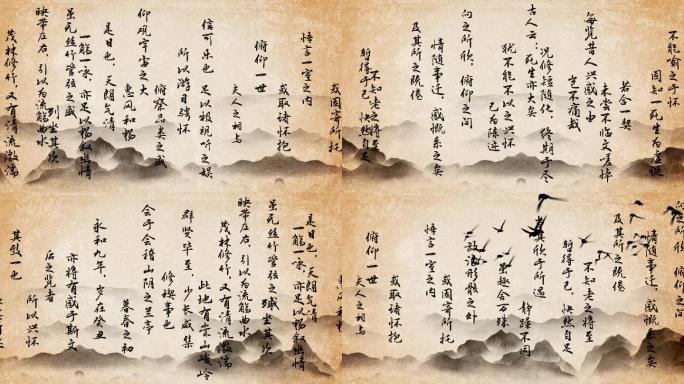 或因寄所托
悟言一室之内
或取诸怀抱
俯仰一世
夫人之相与
信可乐也 足以极视听之娱
所以游目骋怀
俯察品类之盛
仰观宇宙之大
惠风和畅
是日也，天朗气清
一觞一咏，亦足以畅叙幽情
虽无丝竹管弦之盛
列坐其次
映带左右，引以为流觞曲水
茂林修竹，又有清流激湍
不能喻之于怀
固知一死生为虚诞
若合一契
未尝不临文嗟悼
每览昔人兴感之由
岂不痛哉
况修短随化，终期于尽
古人云：死生亦大矣
犹不能不以之兴怀
已为陈迹
向之所欣，俯仰之间
情随事迁，感慨系之矣
及其所之既倦
不知老之将至
暂得于己 快然自足
是日也，天朗气清
一觞一咏，亦足以畅叙幽情
虽无丝竹管弦之盛
列坐其次
映带左右，引以为流觞曲水
茂林修竹，又有清流激湍
此地有崇山峻岭
群贤毕至，少长咸集
修禊事也
会于会稽山阴之兰亭
暮春之初
永和九年，岁在癸丑
亦将有感于斯文
后之览者
所以兴怀
其致一也
向之所欣，俯仰之间
情随事迁，感慨系之矣
及其所之既倦
不知老之将至
暂得于己，快然自足
其欣于所遇
静躁不同
虽趣舍万殊
放浪形骸之外
悟言一室之内
或取诸怀抱
俯仰一世
夫人之相与